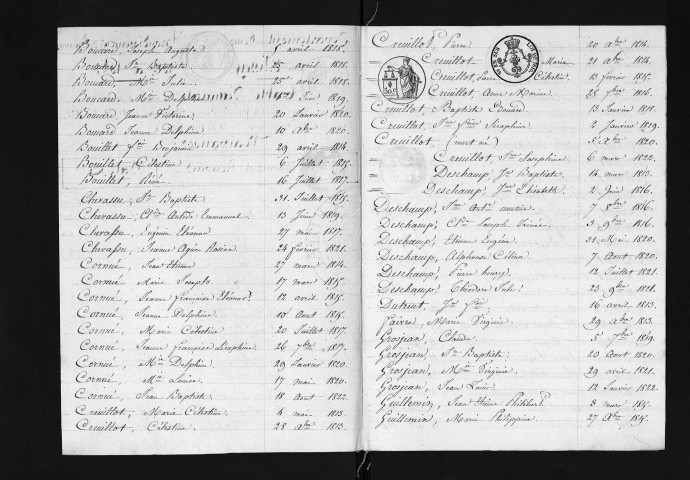 Bouard, Joseph Auguste. 1 avril 1818.
Bouard, Jn Baptiste 25 avril 1818.
Bouard, Min Julie. 25 avril 1818.
Bouard, Min Delphine Juin 1819.
Bouard Jeanne Victorine. 20 Janvier 1820.
Bouard Jeanne Delphine 10 Xbre 1820.
Bouillet fois Benjamin 29 avril 1814.
Bouillet, Célestine. 6 Juillet 1815.
Bouillet, Réné. 16 Juillet 1817.
Chevassu, Jn Baptiste. 31 Juillet 1815.
Chevassu, Emmanuel. 13 Juin 1819.
Chevassu, Eugène 27 mai 1817.
Chevassu, Jeanne Agnès Rosine 24 février 1821.
Cornué, Jean Etienne 27 mars 1814.
Cornué Marie 17 mars 1815.
Cornué, Jeanne françoise 12 avril 1815.
Cornué, Jeanne Delphine. 10 Aout 1815.
Cornué, Marie Célestine. 20 Juillet 1817.
Cornué, Jeanne françoise Séraphine. 26 7bre 1817.
Cornué, Min Delphine 29 Janvier 1820.
Cornué, Min Louise. 17 mai 1820.
Cornué, Jean Baptiste 18 Aout 1822.
Creuillot, Marie Célestine. 4 mai 1813.
Creuillot, Célestine. 28 Xbre 1813.
Creuillot, Pierre 20 Xbre 1814.
Creuillot Marie 21 Xbre 1814.
Creuillot, Célestin. 13 février 1815.
Creuillot, Anne Marine. 25 7bre 1816.
Creuillot, Baptiste Edouard. 13 Janvier 1818.
Creuillot, Séraphine 2 Janvier 1819.
Creuillot, (mort né) 5 Xbre 1820.
Creuillot, Joséphine 6 mars 1822.
Deschamp, Jn Baptiste 14 mars 1813.
Deschamp, Elizabeth 2 Juin 1816.
Deschamp, 7 8bre 1816.
Deschamp, Joseph 3 9bre 1816.
Deschamp, Etienne Eugène. 31 Mai 1820.
Deschamp, Alphonse 7 Aout 1820.
Deschamp, Pierre henry. 12 Juillet 1821.
Deschamp, Théodore Jules. 23 9bre 1821.
16 avril 1813.
Faivre, Marie Virginie. 29 Xbre 1813.
Grosjean, Claude. 5 7bre 1819.
Grosjean, Jn Baptiste. 20 Aout 1820.
Grosjean, Min Virginie. 29 avril 1821.
Grosjean, Jean Louis 12 Janvier 1822.
Guillemin, Jean Etienne Philibert. 3 mars 1815.
Guillemin, Marie Philippine. 27 Xbre 1815.